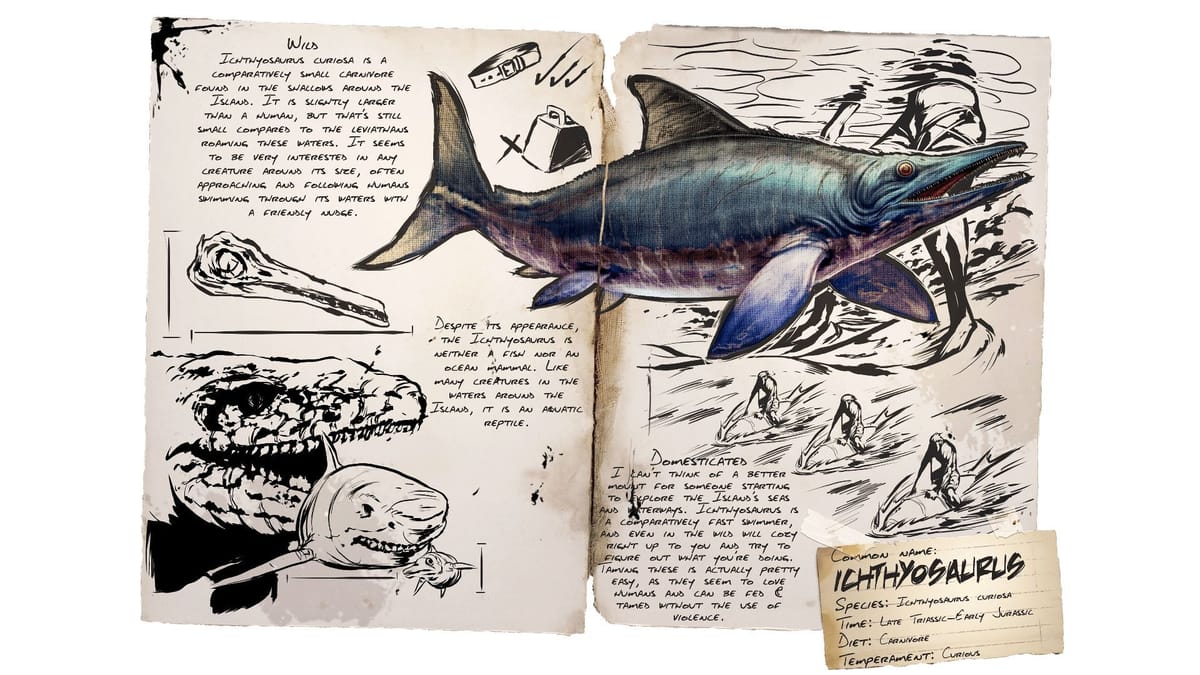 Wild
Ichthyosaurus curiosa is a
comparatively small carnivore
found in the shallows around the
Island. It is slightly larger
than a human, but that's still
small compared to the leviathans
roaming these waters. It seems
to be very interested in any
creature around its size, often
approaching and following humans
swimming through its waters with
a friendly nudge.
Despite its appearance,
the Ichthyosaurus is
neither a fish nor an
ocean mammal. Like
many creatures in the
waters around the
Island, it is an aquatic
reptile.
Domesticated
I can't think of a better
mount for someone starting
to explore the Island's seas
and waterways. Ichthyosaurus is
a comparatively fast swimmer,
and even in the wild will cozy
right up to you and try to
figure out what you're doing.
Taming these is actually pretty
easy, as they seem to love
humans and can be fed &
tamed without the use of
violence.
Common name:
ICHTHYOSAURUS
Species: Ichthyosaurus curiosa
Time: Late Triassic-Early Jurassic
Diet: Carnivore
Temperament: Curious